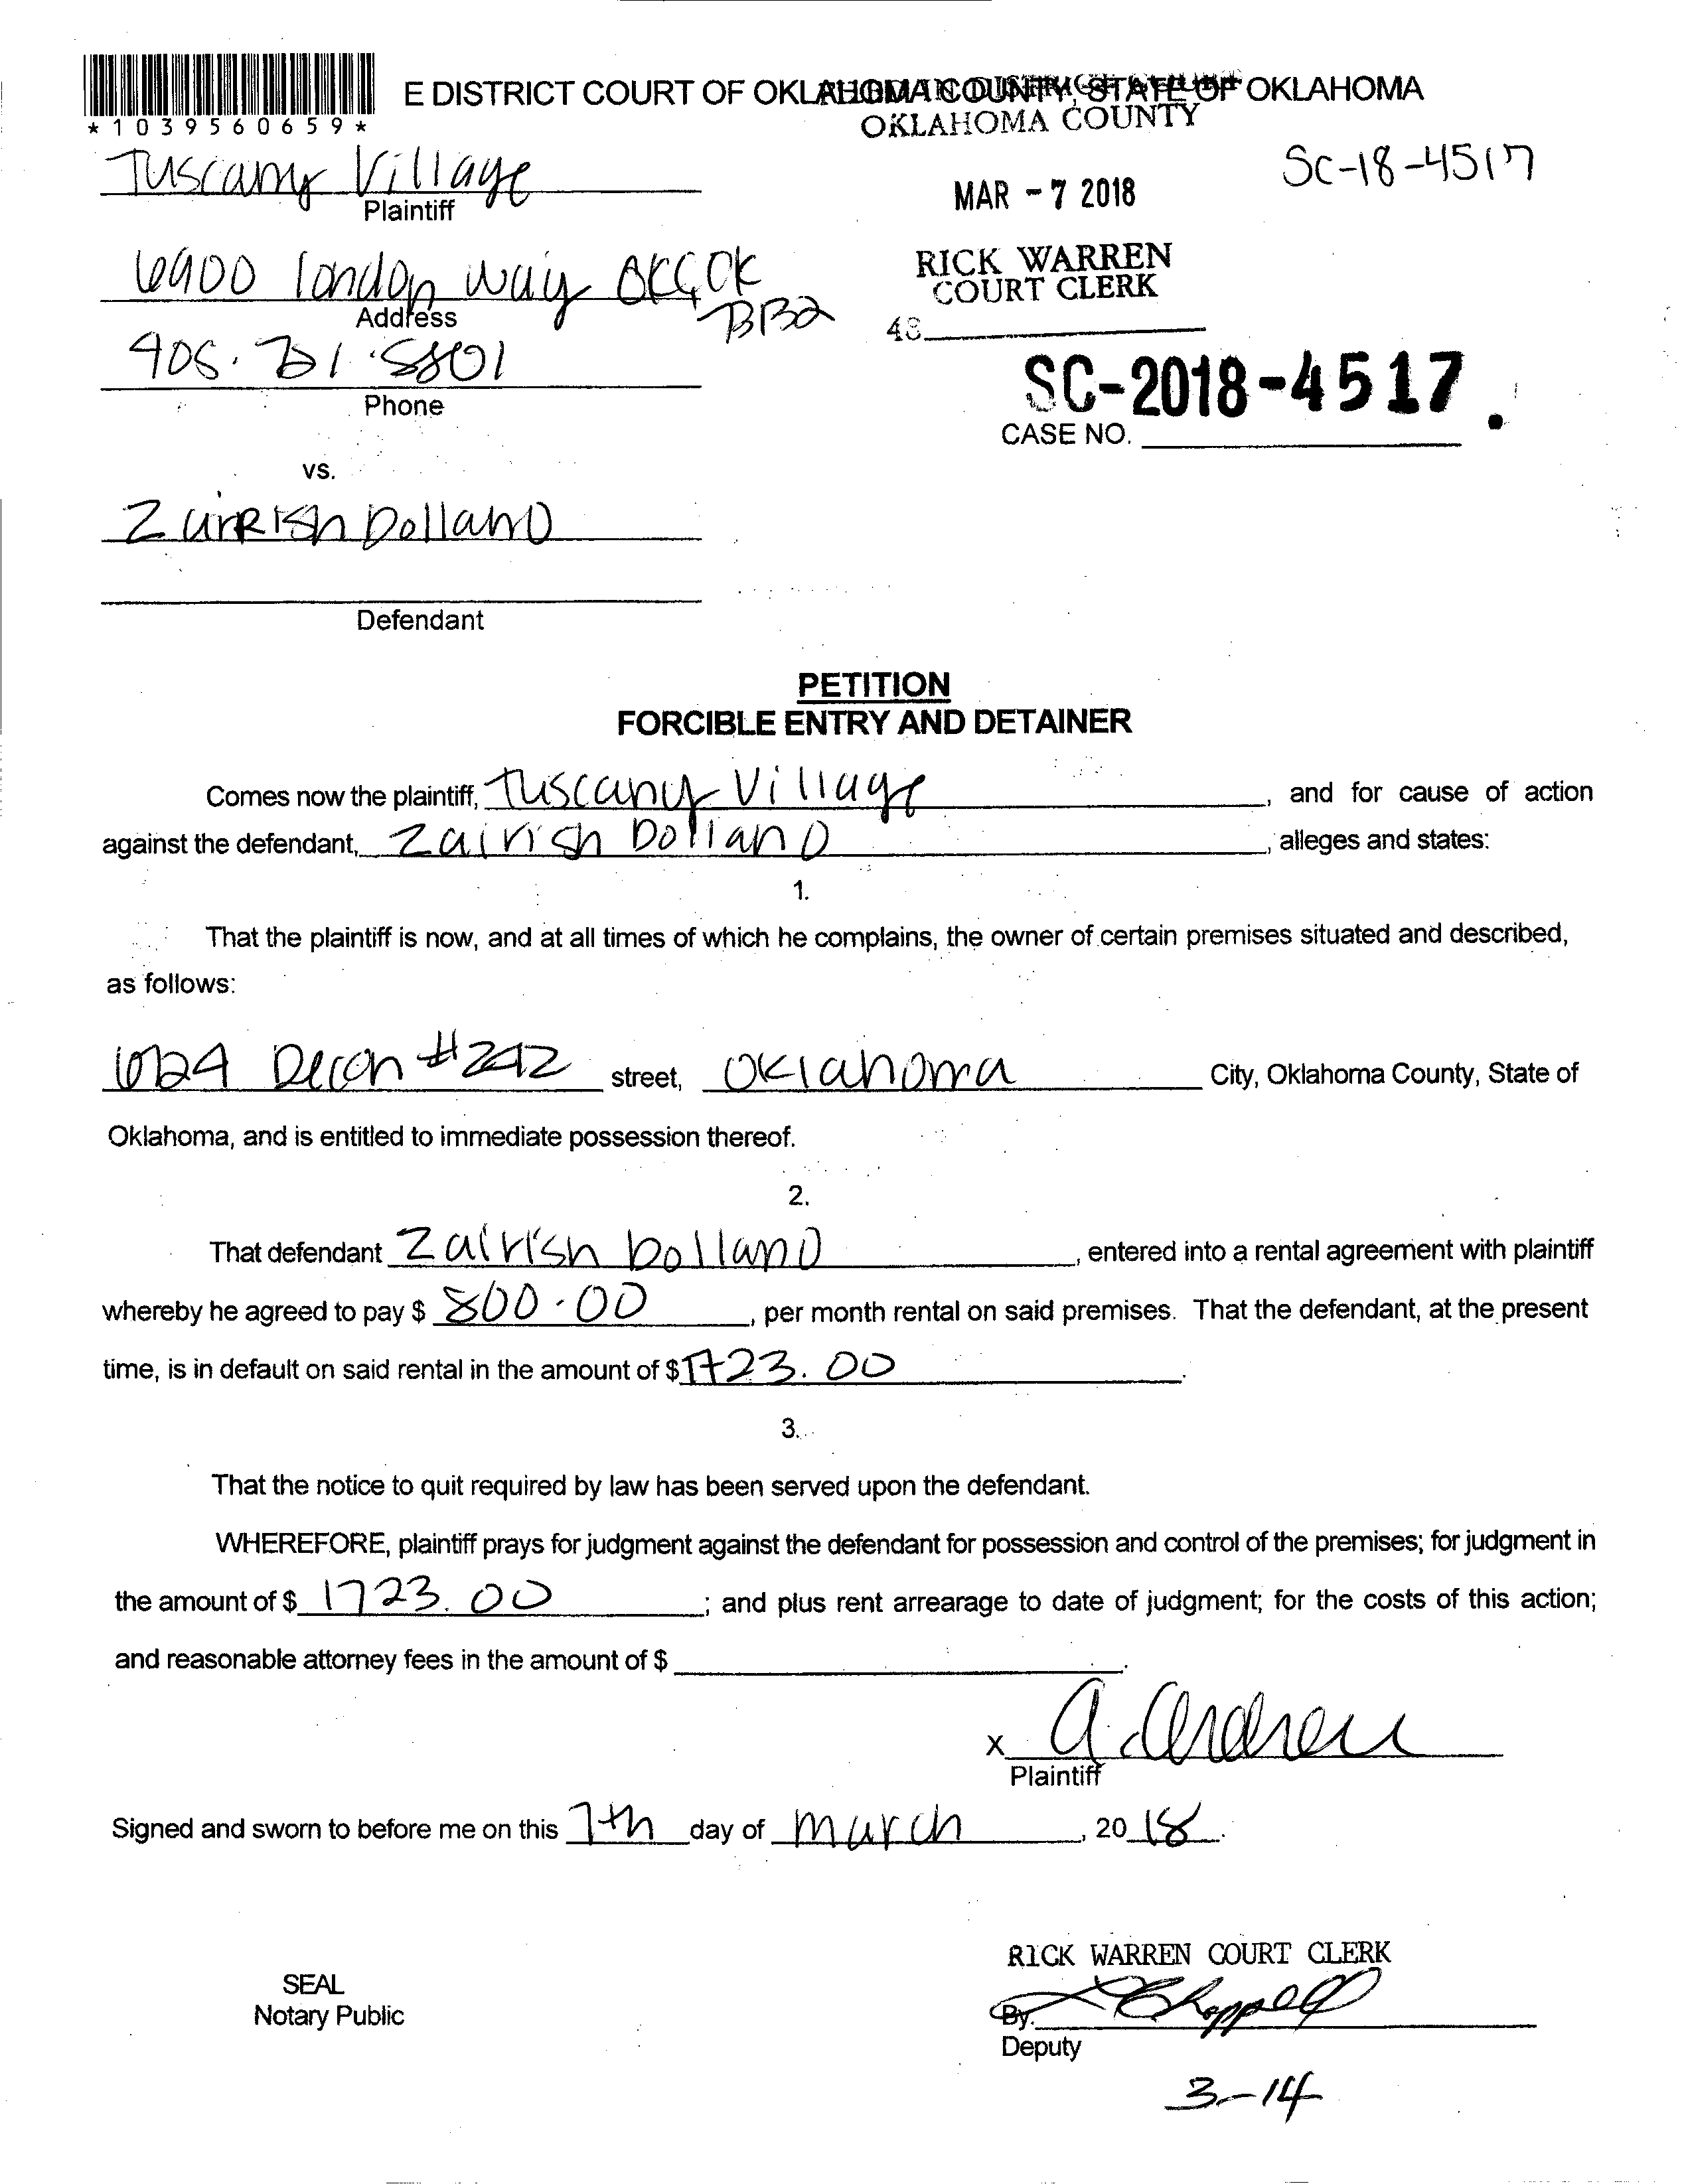 *1039560659*
E DISTRICT COURT OF OKLAHOMA COUNTY, STATE OF OKLAHOMA
OKLAHOMA COUNTY
Tuscany Village
Plaintiff
SC-18-4517
MAR - 7 2018
6900 London Way OKC, OK
Address
RICK WARREN
COURT CLERK
48
405.721.5801
Phone
SC-2018-4517
CASE NO.
vs.
Zairish Dolland
Defendant
PETITION
FORCIBLE ENTRY AND DETAINER
Comes now the plaintiff, Tuscany Village, and for cause of action
against the defendant, Zairish Dolland, alleges and states:
1.
That the plaintiff is now, and at all times of which he complains, the owner of certain premises situated and described,
as follows:
#242 street, Oklahoma City, Oklahoma County, State of
Oklahoma, and is entitled to immediate possession thereof.
2.
That defendant Zairish Dolland, entered into a rental agreement with plaintiff
whereby he agreed to pay $ 800.00, per month rental on said premises. That the defendant, at the present
time, is in default on said rental in the amount of $1723.00.
3.
That the notice to quit required by law has been served upon the defendant.
WHEREFORE, plaintiff prays for judgment against the defendant for possession and control of the premises; for judgment in
the amount of $ 1723.00; and plus rent arrearage to date of judgment; for the costs of this action;
and reasonable attorney fees in the amount of $
x
Plaintiff
Signed and sworn to before me on this 7th day of March, 2018.
RICK WARREN COURT CLERK
SEAL
Notary Public
By.
Deputy
3-14